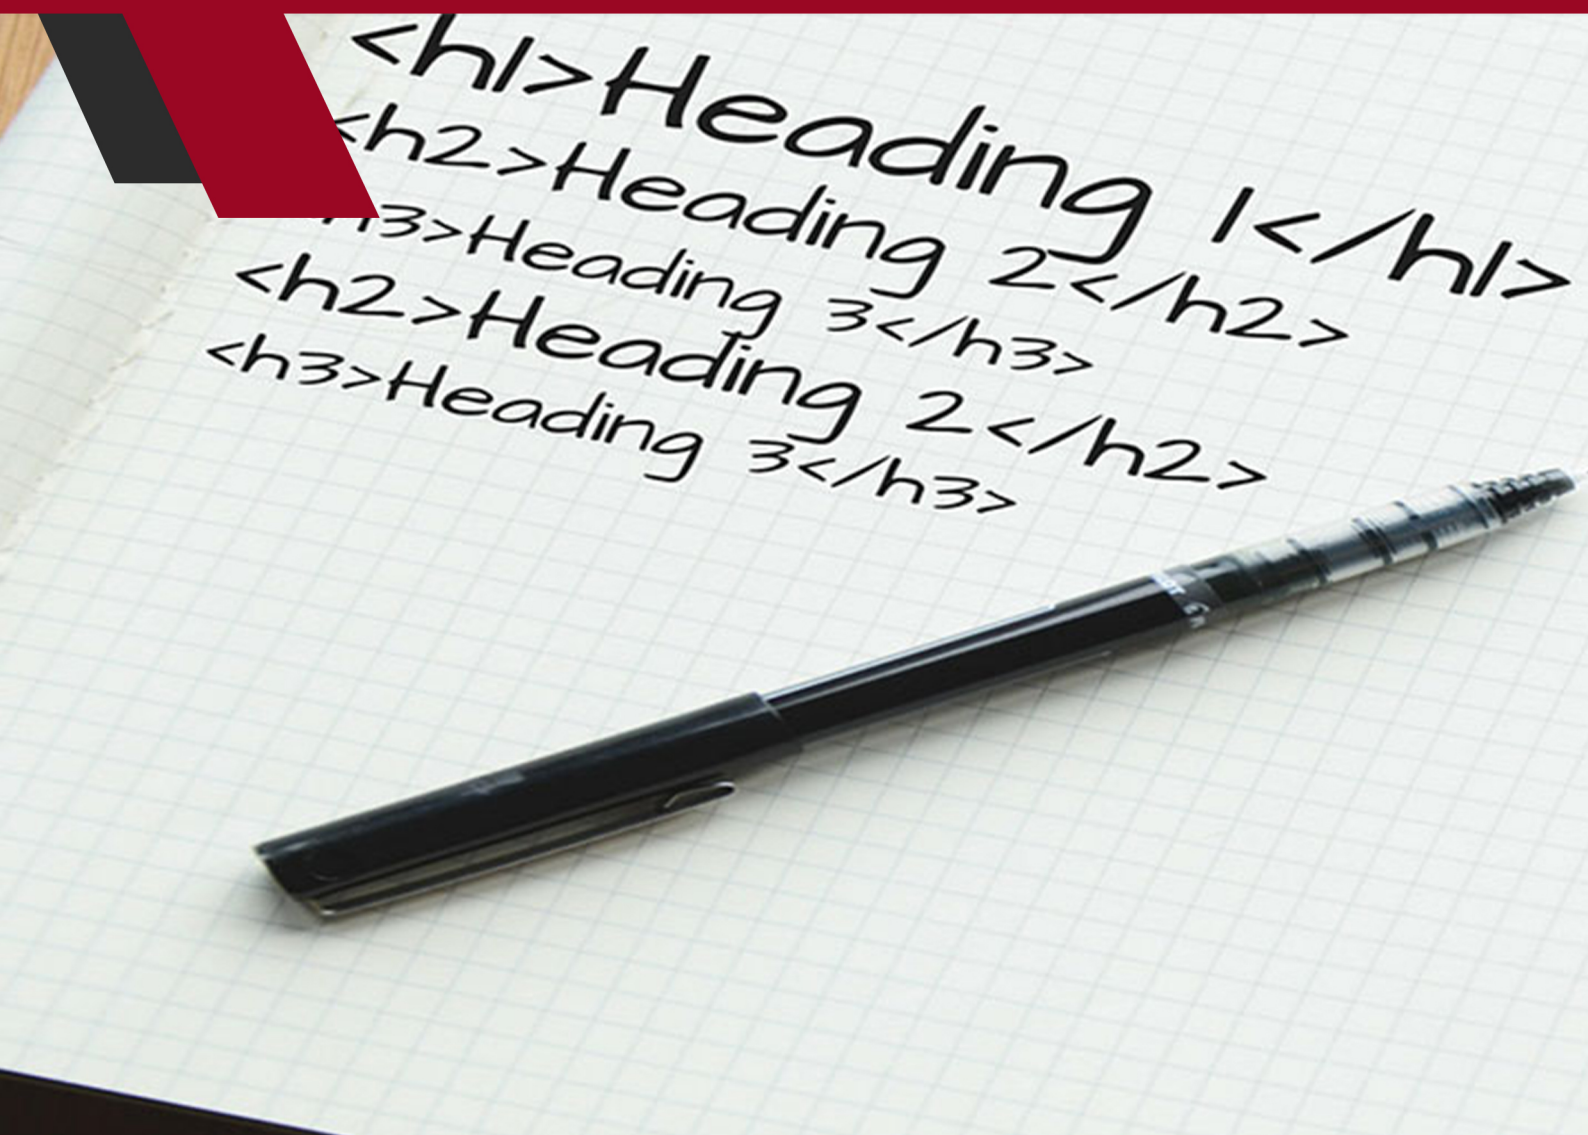 <h1>Heading 1</h1>
<h2>Heading 2</h2>
h3>Heading 3</h3>
<h2>Heading 2</h2>
<h3>Heading 3</h3>